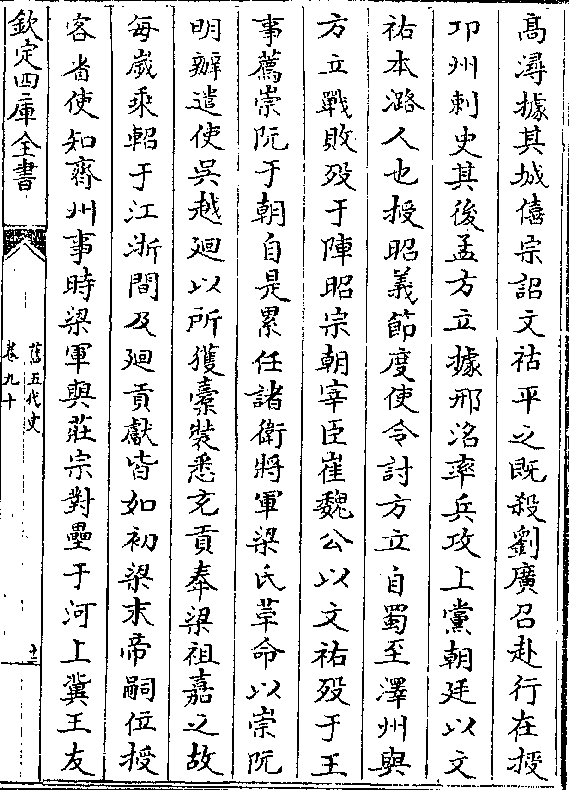 高潯據其城僖宗詔文祜平之既殺劉廣召赴行在授
卭州刺史其後孟方立據邢洺率兵攻上黨朝廷以文
祐本潞人也授昭義節度使令討方立自蜀至澤州與
方立戰敗歿于陣昭宗朝宰臣崔魏公以文祐歿于王
事薦崇阮于朝自是累任諸衛將軍梁氏革命以崇阮
明辦遣使吳越廻以所獲橐裝悉充貢奉梁祖嘉之故
每歲乘軺于江浙間及廻貢獻皆如初梁末帝嗣位授
客省使知齊州事時梁軍與莊宗對壘于河上冀王友
欽定四庫全書
舊五代史
卷九十
十三